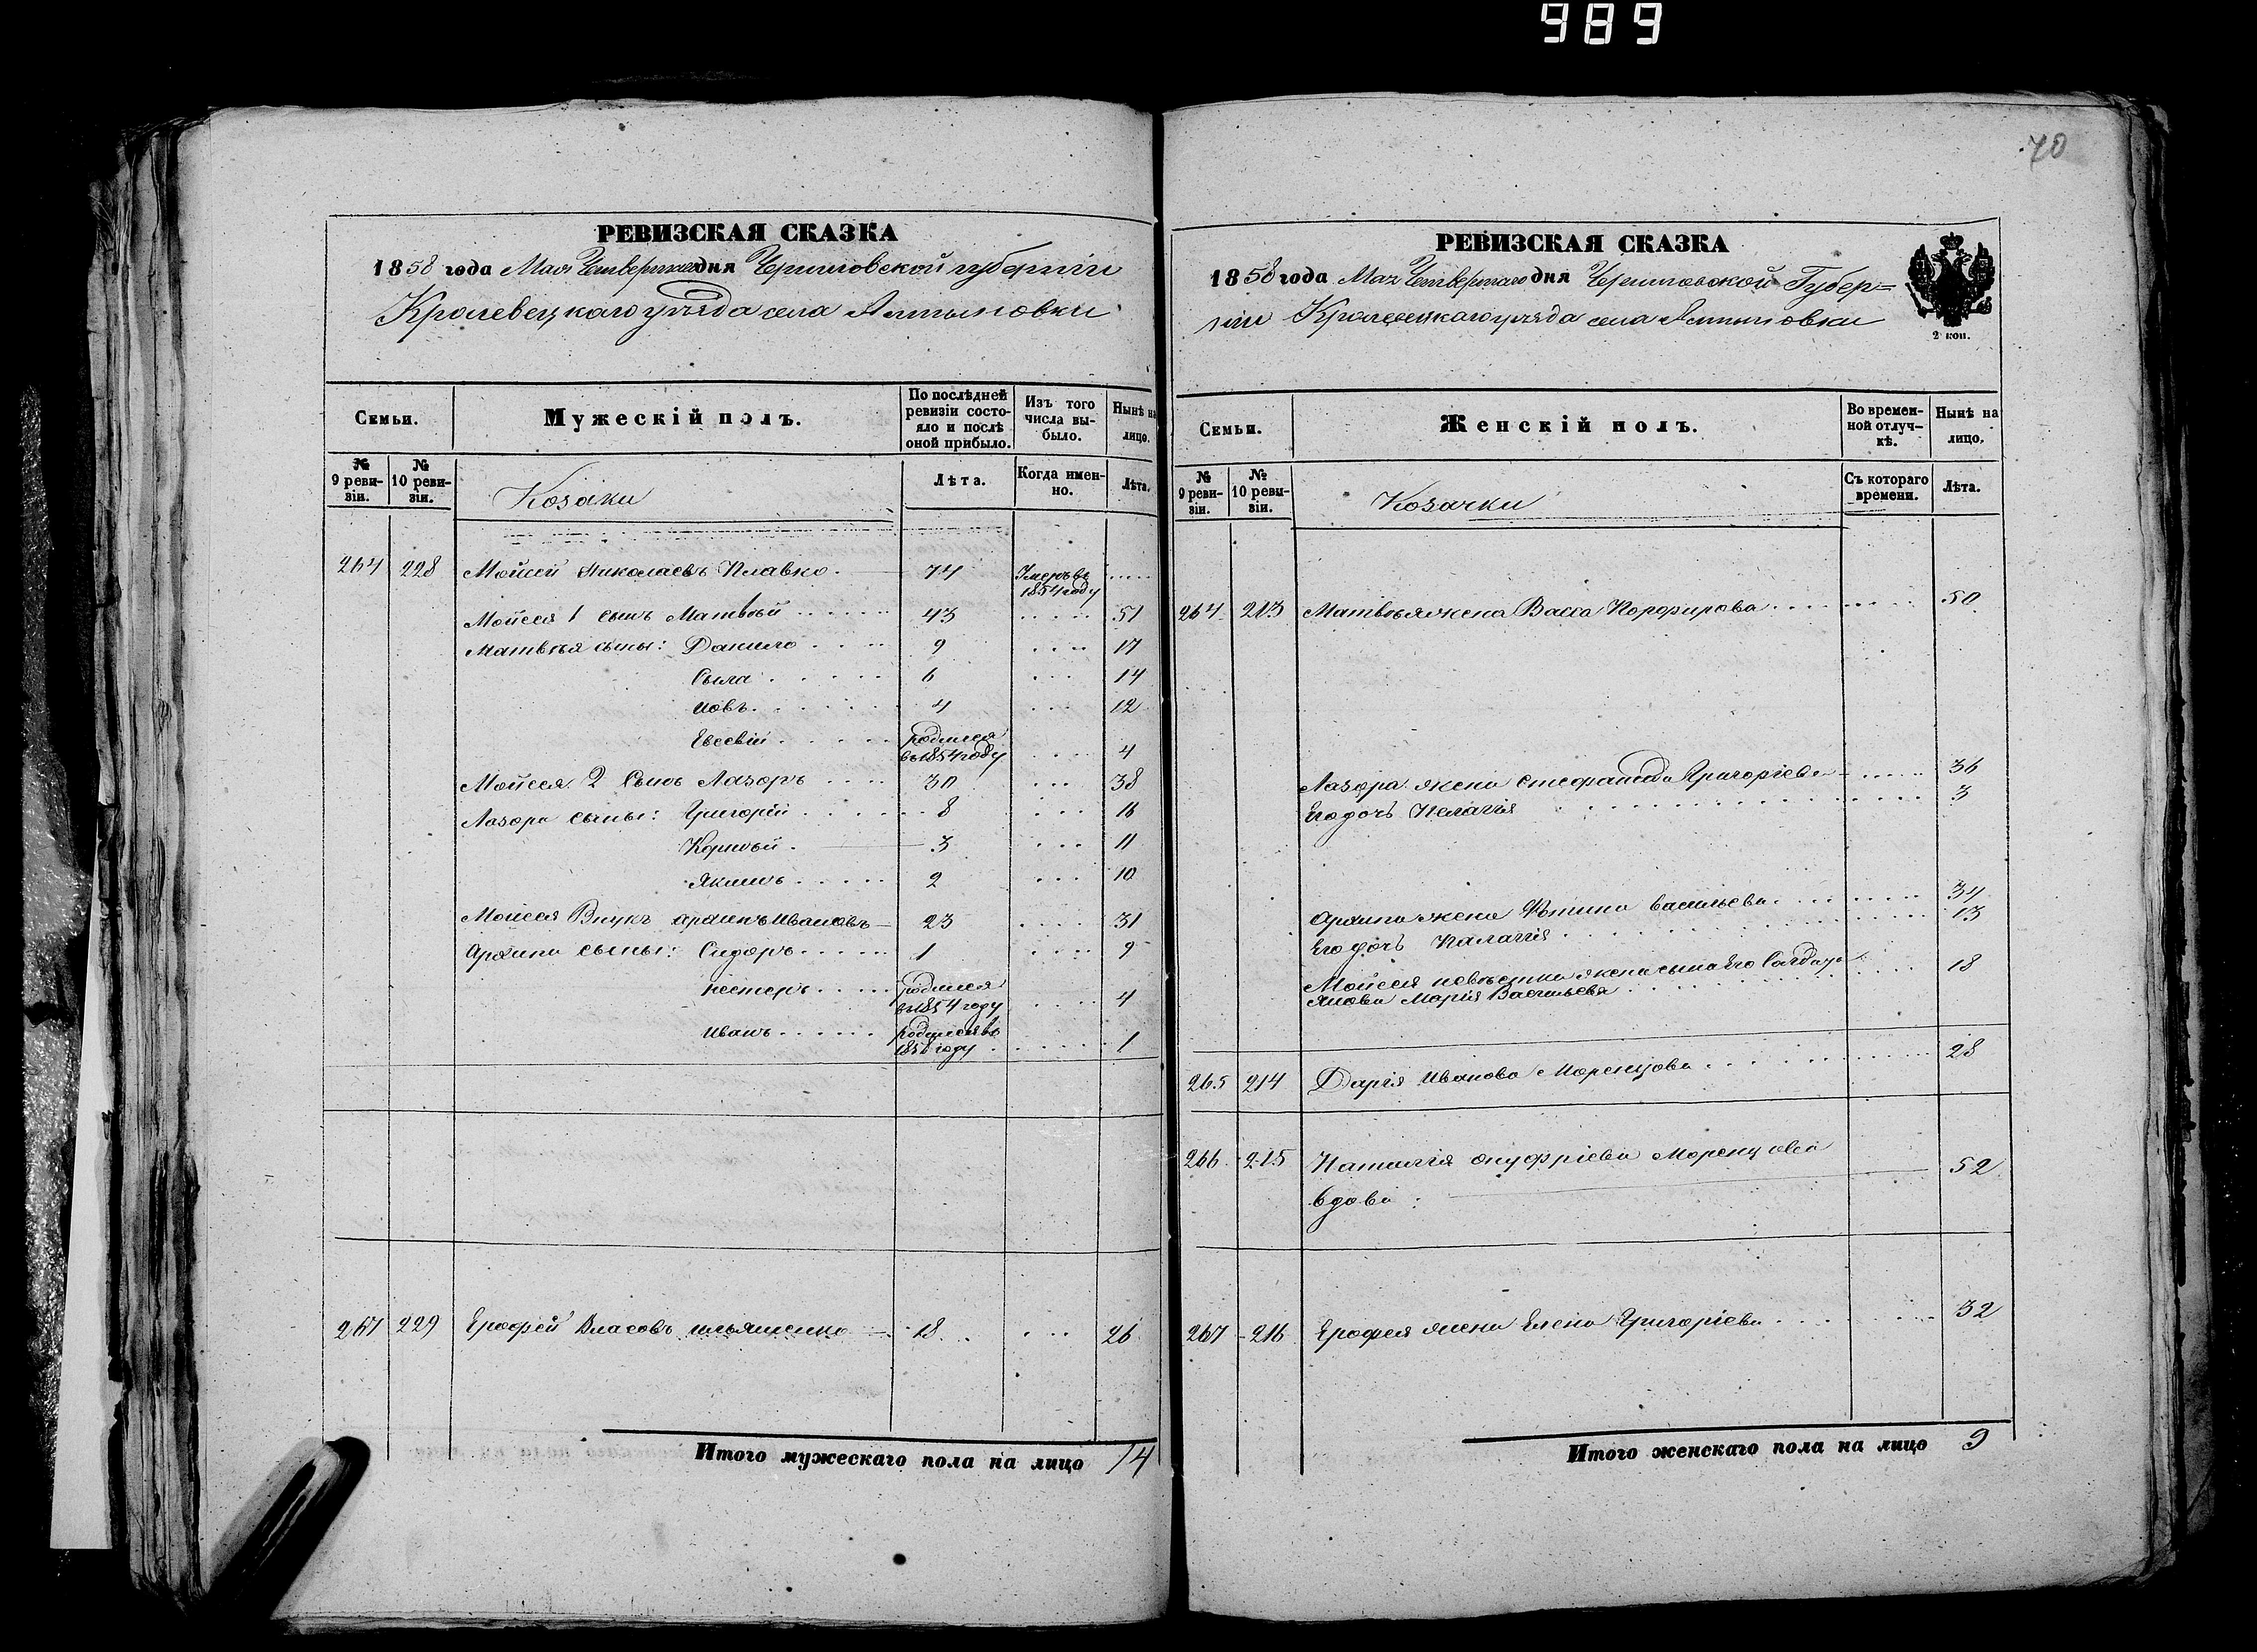 989
70
РЕВИЗСКАЯ СКАЗКА
1858 года Мая Четвертаго дня Черниговской губерніи
Кролевецкаго уѣзда села Алтыновки
Семьи.
Мужескій полъ.
По послѣдней ревизіи состояло и послѣ оной прибыло.
Изъ того числа выбыло.
Нынѣ на лицо.
№ 9 ревизіи.
№ 10 ревизіи.
Козаки
Лѣта.
Когда именно.
Лѣта.
264 228 Мойсей Николаевъ Плавко. 74 Умеръ въ 1854 году
Мойсея 1 сынъ Матвѣй 43 51
Матвѣя сыны: Данило 9 17
Сыла 6 14
Иовъ 4 12
Евсевій родился въ 1854 году 4
Мойсея 2 Сынъ Лазоръ 30 38
Лазора сыны: Григорій 8 16
Корнѣй 3 11
Якимъ 2 10
Мойсея Внукъ Архипъ Ивановъ 23 31
Архипа сыны: Сидоръ 1 9
Нестеръ родился въ 1854 году 4
Иванъ родился въ году 1
267 229 Ерофей Власовъ Ильяшенко 18 26
Итого мужескаго пола на лицо 14
РЕВИЗСКАЯ СКАЗКА
1858 года Мая Четвертаго дня Черниговской Губер=
ніи Кролевецкаго уѣзда села Алтыновки
2 коп.
Семьи.
Женскій полъ.
Во временной отлучкѣ.
Нынѣ на лицо.
№ 9 ревизіи.
№ 10 ревизіи.
Козачки
Съ котораго времени.
Лѣта.
264 213 Матвѣя жена Васса Порфирова 50
Лазора жена Стефанида Григоріева 36
Его дочь Пелагія 3
Архипа жена Фотина Васильева 34
Его дочь Палагія 13
Мойсея невѣстка жена сына Его Солдата
Марія Васильева 18
265 214 Дарія Иванова Моренцова 28
266 215 Наталія Онуфріева Моренцова
вдова 52
267 216 Ерофея жена Елена Григоріева 32
Итого женскаго пола на лицо 9